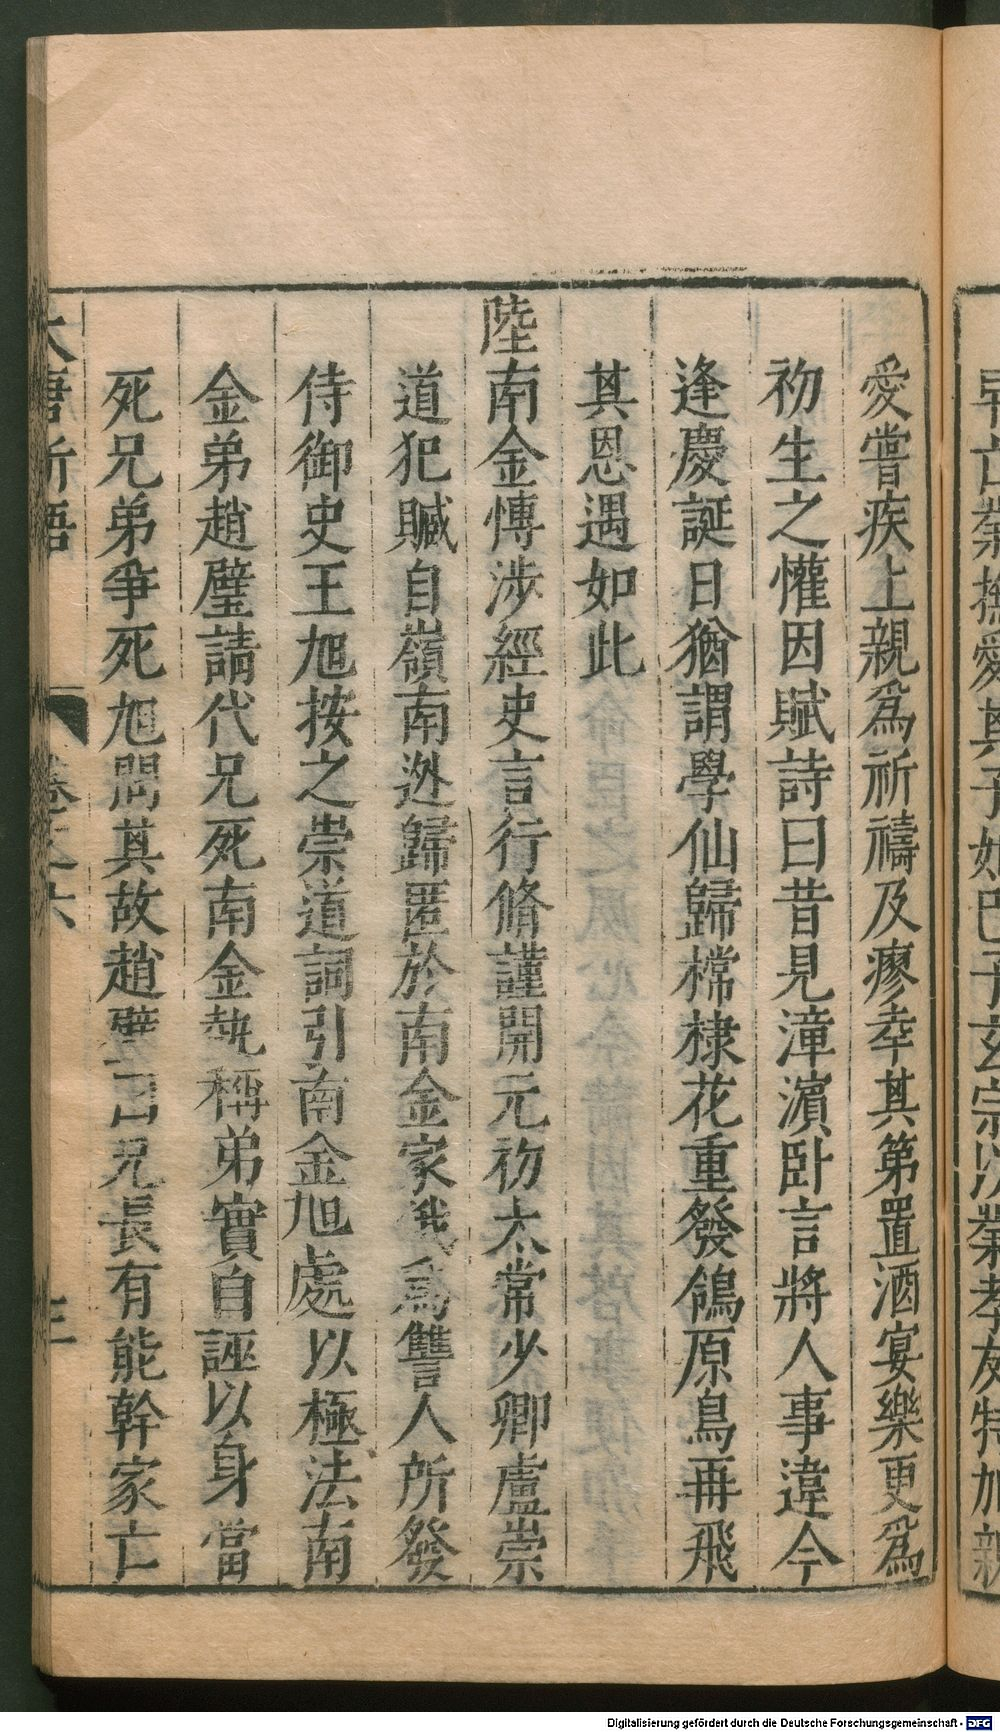 愛嘗疾上親爲祈禱及瘳幸其第置酒宴樂更爲
初生之懽因賦詩曰昔見漳濵卧言將人事違今
逢慶誕日猶謂學仙歸棠棣花重發鴒原鳥再飛
其恩遇如此
陸南金愽涉經史言行脩謹開元初太常少卿盧崇
道犯贓自嶺南逃歸匿於南金家俄爲讐人所發
侍御史王旭按之崇道詞引南金旭處以極法南
金弟趙璧請代兄死南金執稱弟實自誣以身當
死兄弟爭死旭問其故趙璧曰兄長有能幹家亡
大唐新語 卷之六 三
Digitalisierung gefördert durch die Deutsche Forschungsgemeinschaft - DFG